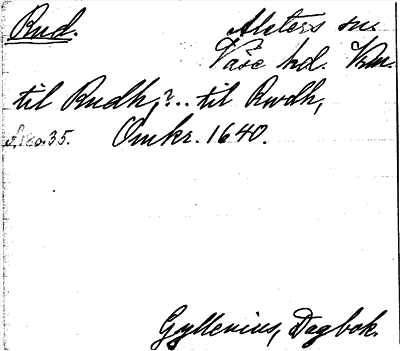 Rud. Alsters sn.
Väse hd. Vrm.
til Rudh, ?.. til Rwdh,
s. 35. Omkr. 1640.
Gyllenius, Dagbok.